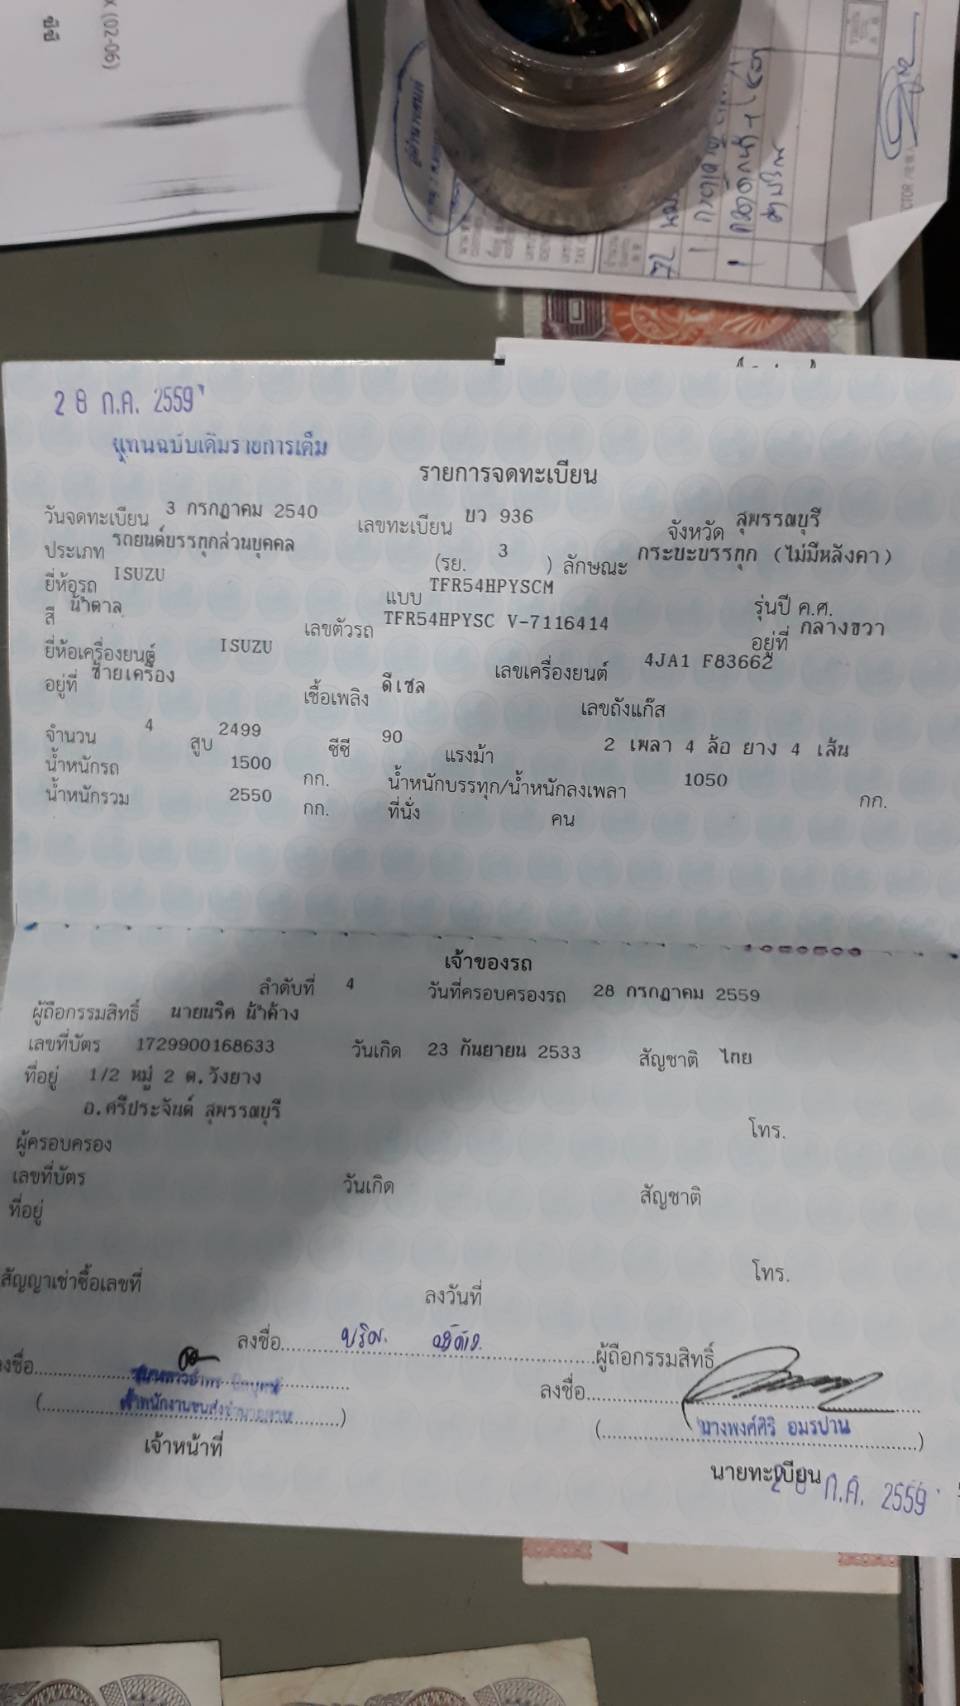 X (02-06)
ซีซี
28 ก.ค. 2559
แทนฉบับเดิมรายการเต็ม
รายการจดทะเบียน
วันจดทะเบียน 3 กรกฎาคม 2540 เลขทะเบียน บว 936 จังหวัด สุพรรณบุรี
ประเภท รถยนต์บรรทุกส่วนบุคคล (รย. 3 ) ลักษณะ กระบะบรรทุก (ไม่มีหลังคา)
ยี่ห้อรถ ISUZU แบบ TFR54HPYSCM รุ่นปี ค.ศ.
สี น้ำตาล เลขตัวรถ TFR54HPYSC V-7116414 อยู่ที่ กลางขวา
ยี่ห้อเครื่องยนต์ ISUZU เลขเครื่องยนต์ 4JA1 F83662
อยู่ที่ ซ้ายเครื่อง เชื้อเพลิง ดีเซล เลขถังแก๊ส
จำนวน 4 สูบ 2499 ซีซี 90 แรงม้า 2 เพลา 4 ล้อ ยาง 4 เส้น
น้ำหนักรถ 1500 กก. น้ำหนักบรรทุก/น้ำหนักลงเพลา 1050 กก.
น้ำหนักรวม 2550 กก. ที่นั่ง คน
เจ้าของรถ
ลำดับที่ 4 วันที่ครอบครองรถ 28 กรกฎาคม 2559
ผู้ถือกรรมสิทธิ์ นายนริศ น้ำค้าง
เลขที่บัตร 1729900168633 วันเกิด 23 กันยายน 2533 สัญชาติ ไทย
ที่อยู่ 1/2 หมู่ 2 ต.วังยาง
อ.ศรีประจันต์ สุพรรณบุรี โทร.
ผู้ครอบครอง
เลขที่บัตร วันเกิด สัญชาติ
ที่อยู่
โทร.
สัญญาเช่าซื้อเลขที่ ลงวันที่
ลงชื่อ ผู้ถือกรรมสิทธิ์
ลงชื่อ ลงชื่อ
เจ้าพนักงานขนส่งชำนาญงาน (นางพงศ์ศิริ อมรปาน)
เจ้าหน้าที่ นายทะเบียน
28 ก.ค. 2559